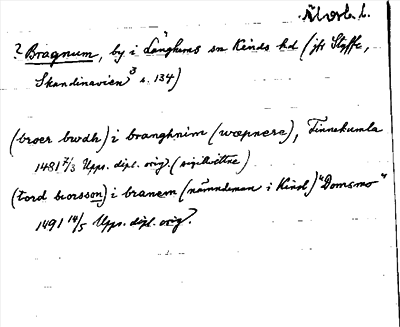 Älvsb. l.
? Bragnum, by i Länghems sn Kinds hd (jfr Steffe,
Skandinavien³ s. 134)
(broer bwdh) i branghnim (wæpnere), Finnekumla
1481 7/3 Upps. dipl. orig. (sigillvittne)
(tord biorsson) i branem (nämndeman i Kind) "Domsmo"
1491 14/5 Upps. dipl. orig.?